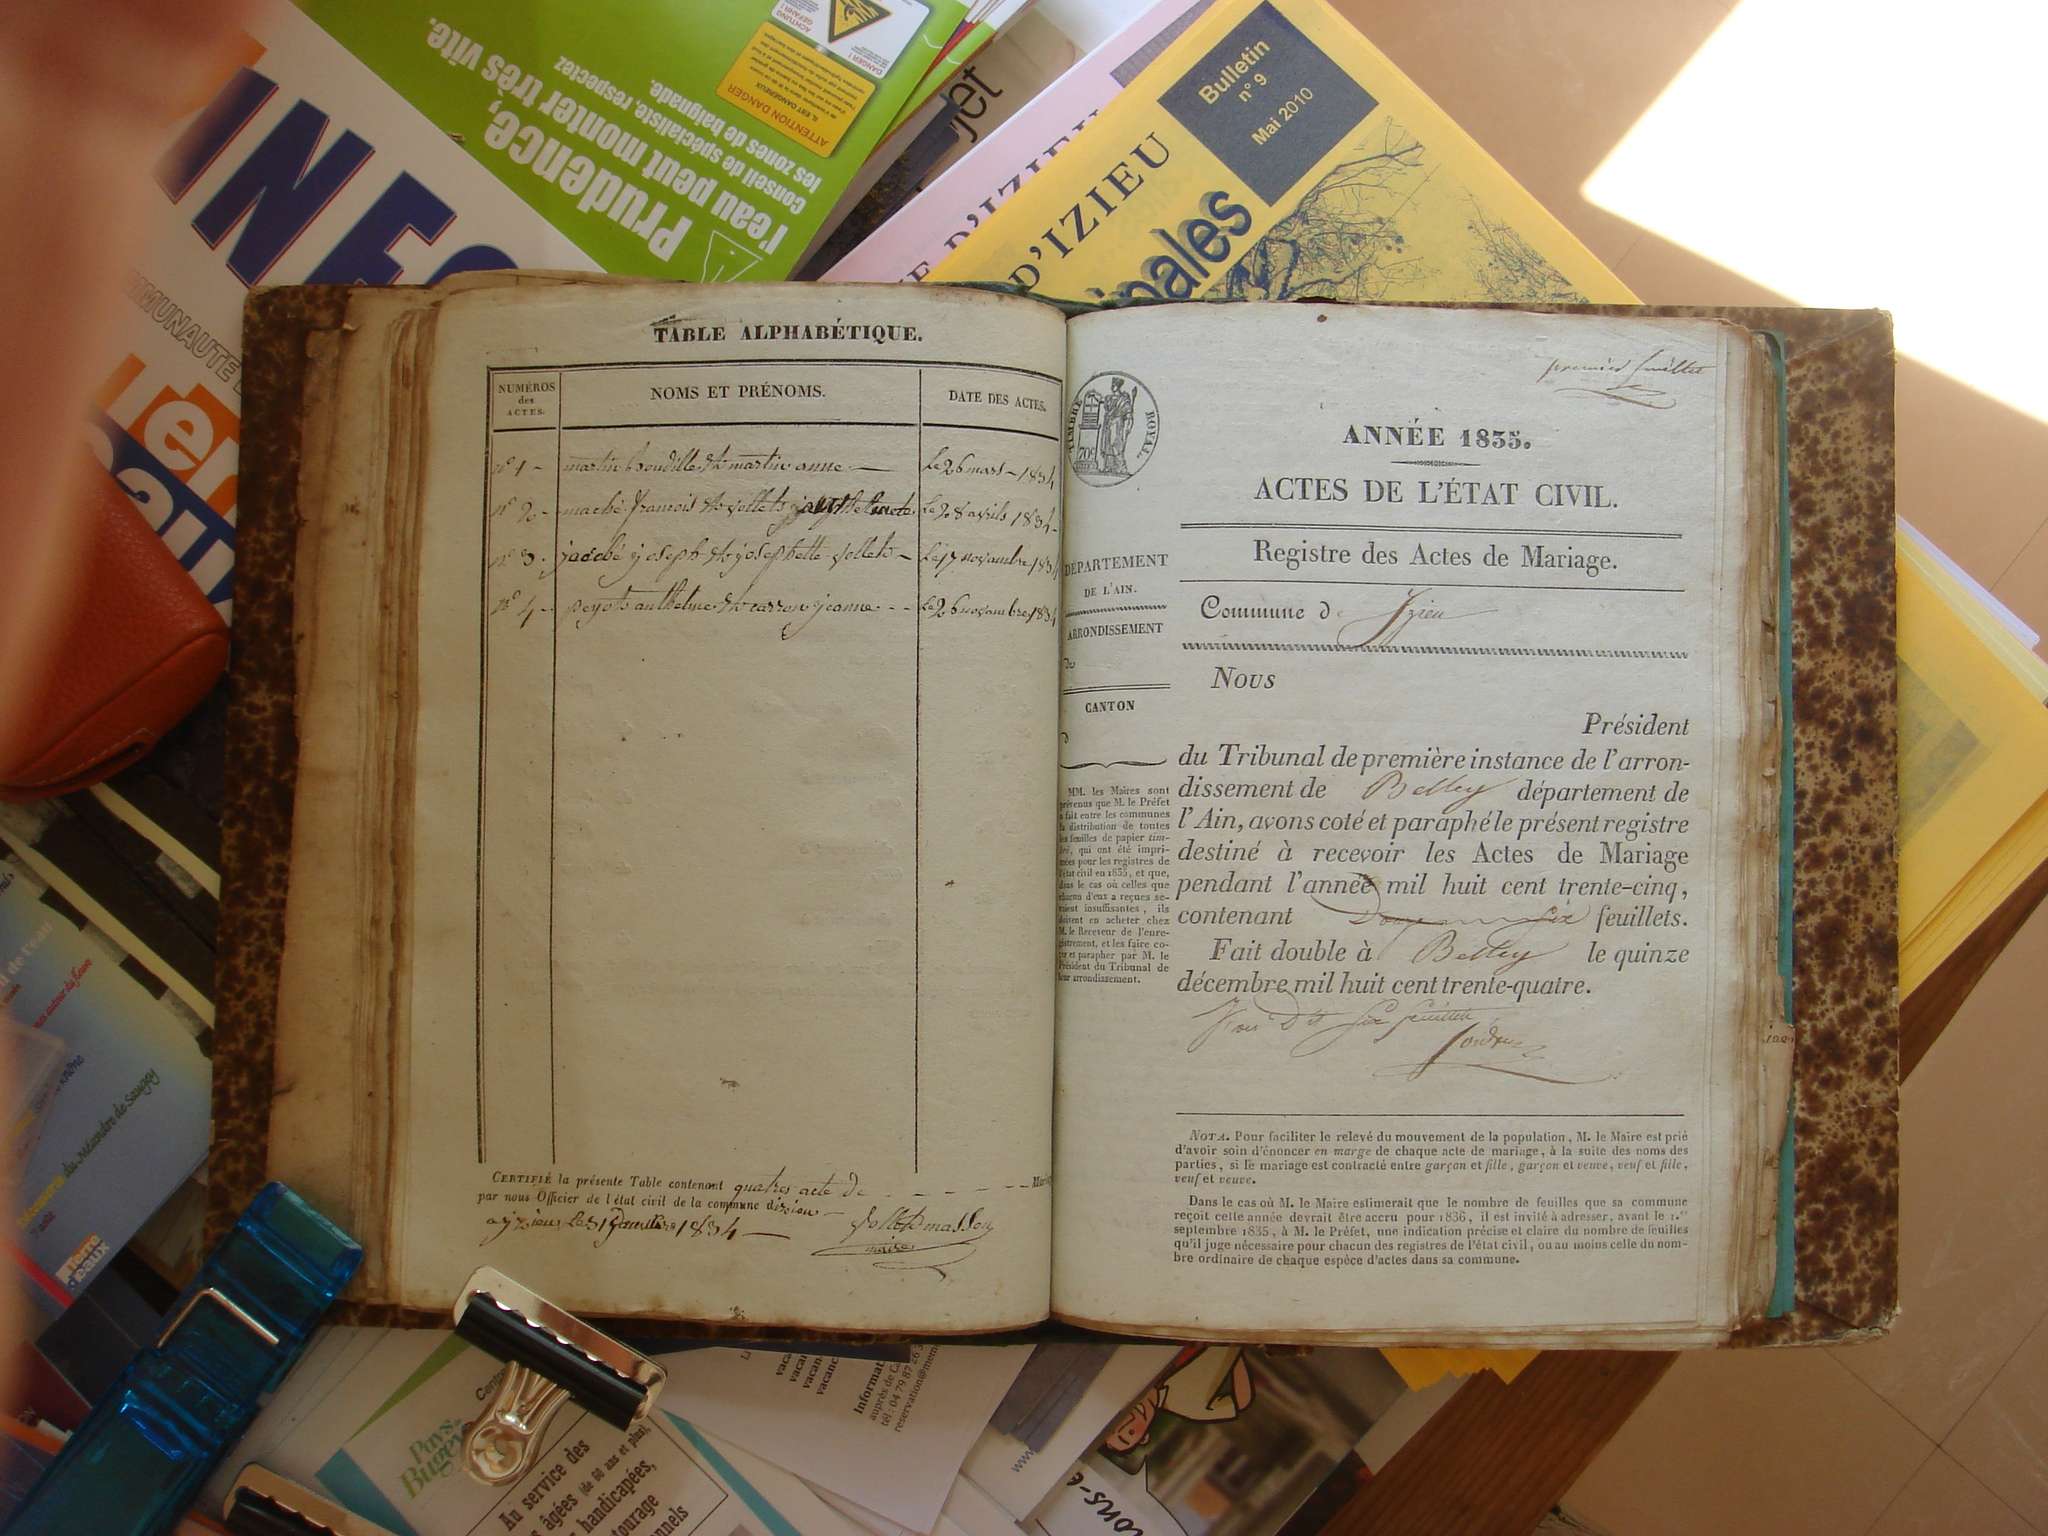 INFO
Prudence,
l'eau peut monter très vite.
Conseil de spécialiste, respectez
les zones de baignade.
ATTENTION DANGER
Bulletin
n° 9
Mai 2010
D'IZIEU
D'IZIEU
TABLE ALPHABÉTIQUE.
NUMÉROS
des
ACTES.
NOMS ET PRÉNOMS.
DATE DES ACTES.
n° 1 - martin anne - Le 26 mars - 1834
n° 2 - maché francois Le 28 avrils 1834
n° 3 - joseph & josephette Le 17 novambre 1834
n° 4 - anthelme & carron jeanne - - Le 26 novambre 1834
CERTIFIÉ la présente Table contenant quatres acte de
par nous Officier de l'état civil de la commune dizieu
a yzieu Le 31 1834
maire
premier feuillet
TIMBRE ROYAL
70c
ANNÉE 1835.
ACTES DE L'ÉTAT CIVIL.
DÉPARTEMENT
DE L'AIN.
ARRONDISSEMENT
de
CANTON
d
Registre des Actes de Mariage.
Commune d Izieu
Nous
Président
du Tribunal de première instance de l'arron-
dissement de Belley département de
l'Ain, avons coté et paraphé le présent registre
destiné à recevoir les Actes de Mariage
pendant l'année mil huit cent trente-cinq,
contenant six feuillets.
Fait double à Belley le quinze
décembre mil huit cent trente-quatre.
six feuillets
MM. les Maires sont
prévenus que M. le Préfet
a fait entre les communes
la distribution de toutes
les feuilles de papier tim-
bré, qui ont été impri-
mées pour les registres de
l'état civil en 1835, et que,
dans le cas où celles que
chacun d'eux a reçues se-
raient insuffisantes, ils
doivent en acheter chez
M. le Receveur de l'enre-
gistrement, et les faire co-
ter et parapher par M. le
Président du Tribunal de
leur arrondissement.
NOTA. Pour faciliter le relevé du mouvement de la population, M. le Maire est prié
d'avoir soin d'énoncer en marge de chaque acte de mariage, à la suite des noms des
parties, si le mariage est contracté entre garçon et fille, garçon et veuve, veuf et fille,
veuf et veuve.
Dans le cas où M. le Maire estimerait que le nombre de feuilles que sa commune
reçoit cette année devrait être accru pour 1836, il est invité à adresser, avant le 1.er
septembre 1835, à M. le Préfet, une indication précise et claire du nombre de feuilles
qu'il juge nécessaire pour chacun des registres de l'état civil, ou au moins celle du nom-
bre ordinaire de chaque espèce d'actes dans sa commune.
Découverte du Méandre de Saugey
Terre
d'eaux
Pays
Bugey
Au service des
âgées (de 60 ans et plus),
handicapées,